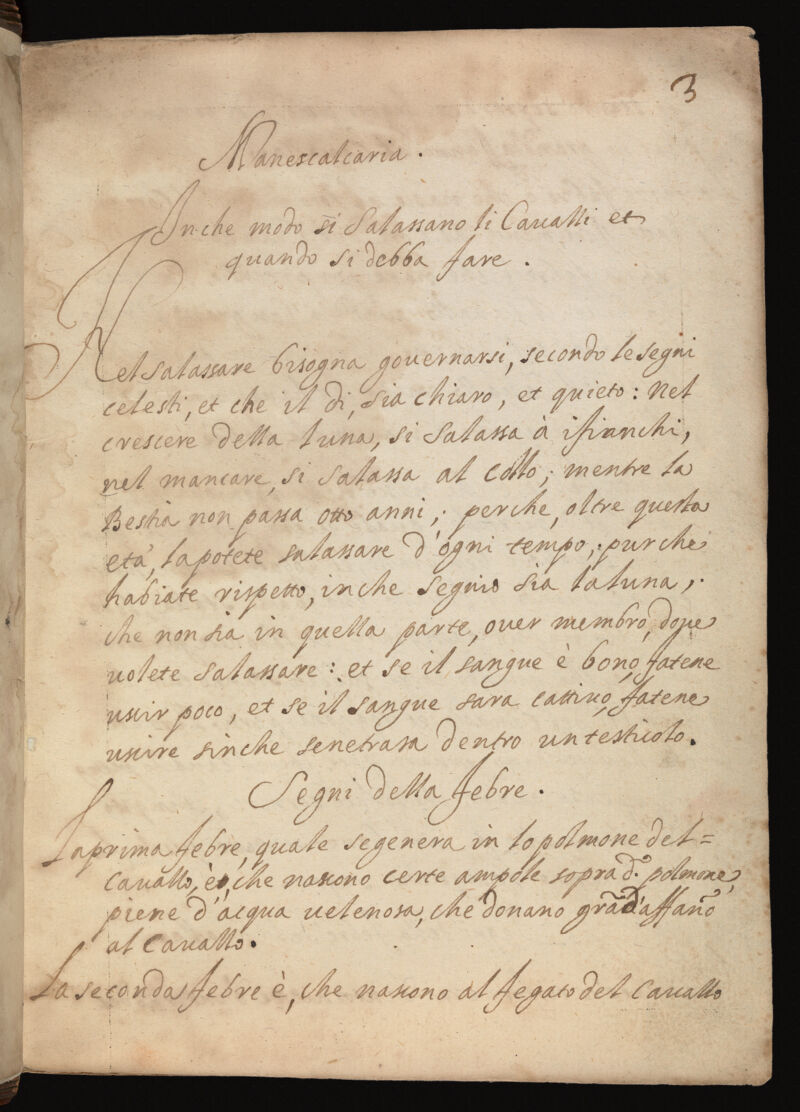 3
Manescalcaria.
In che modo si salassano li Cavalli et
quando si debba fare.
Nel salassare bisogna governarsi, secondo le segni
celesti, et che il di, sia chiaro, et quieto: Nel
crescere della luna, si salassa à i fianchi,
nel mancare, si salassa al collo; mentre la
Bestia non passa otto anni; perche, oltre questa
età, la potete salassare d'ogni tempo; purche
habiate rispetto, in che segnio sia la luna;
che non sia in quella parte, over membro, dove
volete salassare: et se il sangue è bono, fatene
uscir poco, et se il sangue sara cattivo, fatene
uscire sinche senetrara dentro un testicolo.
Segni della febre.
La prima febre, quale se genera in lo polmone del=
Cavallo, è, che nascono certe ampole sopra d.º polmone,
piene d'acqua velenosa, che donano gra͂d'affan͂o
al Cavallo.
La seconda febre è, che nascono al fegato del Cavallo